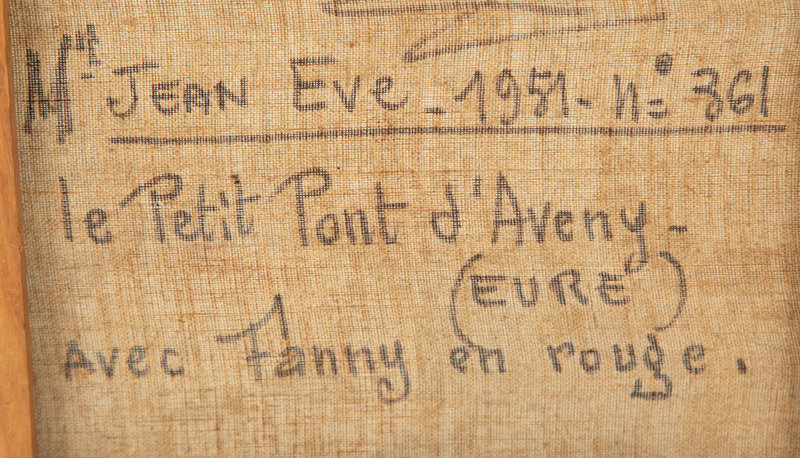 Mr JEAN EVe - 1951 - n° 361
le Petit Pont d'Aveny -
(EURE)
Avec Fanny en rouge.